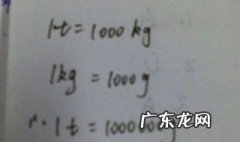 1t = 1000 kg
1kg = 1000 g
∴ 1t = 1000000 g
广东龙网